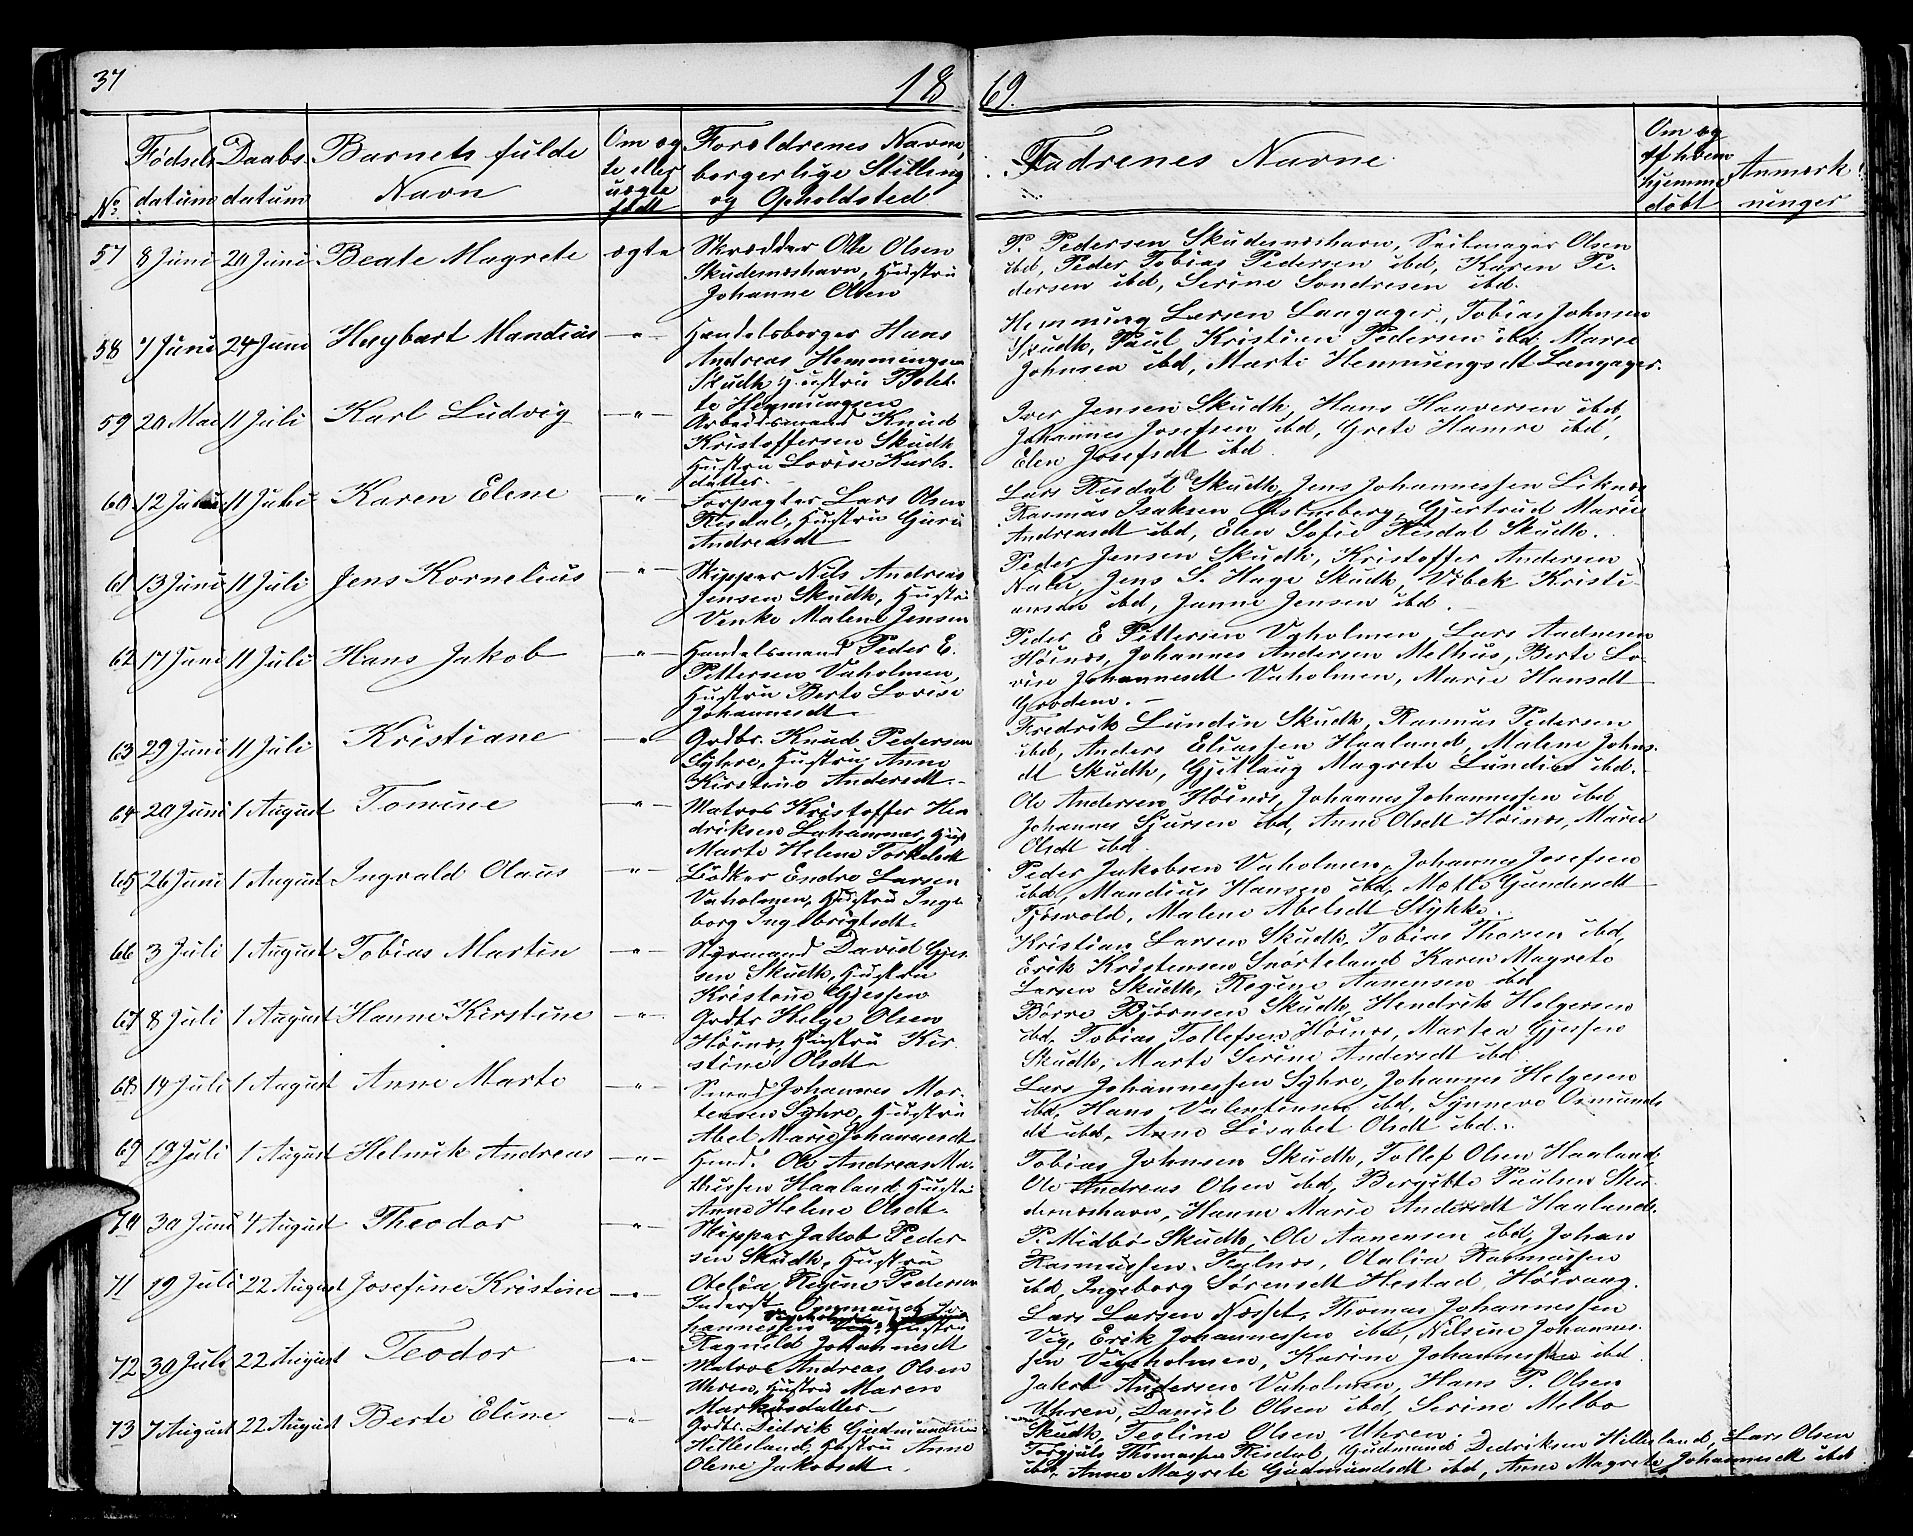 37
18 69.
No
Fødsels datum
Daabs datum
Barnets fulde Navn
Om ægte eller uægte født
Forældrenes Navne, borgerlige Stilling og Opholdsted
Fadrenes Navne
Om og af hvem hjemme døbt
Anmærkninger
57 8 Juni 20 Juni Beate Magrete ægte
Skrædder Ole Olsen
Skudesneshavn, Hustru
Johanne Olsen
P. Pedersen Skudesneshavn, Seilmager Olsen
ibd, Peder Tobias Pedersen ibd, Karen Pe-
dersen ibd, Serine Sondresen ibd.
58 7 Juni 24 Juni Huybart Mandius -"-
Handelsborger Hans
Andreas Hemmingsen
Skudh, Hustru Bolet-
te Hemmingsen
Hemming Larsen Langager, Tobias Johnsen
Skudh, Paul Kristian Pedersen ibd, Marie
Johnsen ibd, Marte Hemmingsdt Langager.
59 20 Mai 11 Juli Karl Ludvig -"-
Arbeidsmand Knud
Kristoffersen Skudh
Hustru Lovise Karls-
datter.
Iver Jensen Skudh, Hans Haaversen ibd,
Johannes Josefsen ibd, Grete Hamre ibd,
Elen Josefsdt ibd.
60 12 11 Juli Karen Elene -"-
Forpagter Lars Olsen
Risdal, Hustru Guri
Andreasdt
Lars Risdal Skudh, Jens Johannessen Liknes
Rasmus Isaksen Gjertrud Marie
Andreasdt ibd, Elen Sofie Risdal Skudh.
61 13 Juni 11 Juli Jens Kornelius -"-
Skipper Nils Andreas
Jensen Skudh, Hustru
Venke Malene Jensen
Peder Jensen Skudh, Kristoffer Andersen
Jens S. Hage Skudh, Vibek Kristi-
ansen ibd, Janne Jensen ibd.
62 17 Juni 11 Juli Hans Jakob -"-
Handelsmand Peder E.
Pettersen Vaholmen,
Hustru Berte Lovise
Johannesdt
Peder E Pettersen Vaholmen, Lars Aadnesen
Høines, Johannes Andersen Melhus, Berte Lo-
vise Johannesdt Vaholmen, Marie Hansdt
63 29 Juni 11 Juli Kristiane -"-
Grdbr. Knud Pedersen
Syhre, Hustru Anne
Kirstine Andersdt.
Fredrik Lundin Skudh, Rasmus Pedersen
ibd, Anders Eliassen Haaland, Malene Johns-
dt Skudh, Gjetlaug Magrete Lundin ibd.
64 20 Juni 1 August Tomine -"-
Matros Kristoffer Hen
driksen Lahammer, Hust
Marte Helene Torkelsdt
Ole Andersen Høines, Johannes Johannessen ibd
Johannes Sjursen ibd, Anne Olsdt Høines, Marie
Olsdt ibd
65 26 Juni 1 August Ingvald Olaus -"-
Bødker Endre Larsen
Vaholmen, Hustru Inge
borg Ingebrigtsdt.
Peder Jakobsen Vaholmen, Johannes Josefsen
ibd, Mandius Hansen ibd, Mætte Gundersdt
Tjøsvold, Malene Abelsdt Stykke.
66 3 Juli 1 August Tobias Martin -"-
Styrmand David Gjes-
sen Skudh, Hustru
Kristine Gjessen
Kristian Larsen Skudh, Tobias Thorsen ibd,
Erik Kristensen Snørteland Karen Magrete
Larsen Skudh, Regine Aanensen ibd
67 8 Juli 1 August Hanne Kirstine -"-
Grdbr Helge Olsen
Høines, Hustru Kir-
stine Olsdt
Børre Bjørnsen Skudh, Hendrik Helgersen
ibd, Tobias Tollefsen Høines, Martea Gjessen
Skudh, Marte Serine Andersdt ibd
68 14 Juli 1 August Anne Marte -"-
Smed Johannes Mor-
tensen Syhre, Hustru
Abel Marie Johannesdt
Lars Johannessen Syhre, Johannes Helgesen
ibd, Hans Valentinsen ibd, Synneve Osmunds
dt ibd, Anne Lisabet Olsdt ibd.
69 19 Juli 1 August Helmik Andreas -"-
Ole Andreas Ma-
thissen Haaland Hustru
Anne Helene Olsdt.
Tobias Johnsen Skudh, Tollef Olsen Haaland,
Ole Andreas Olsen ibd, Bergitte Paulsen Sku-
desneshavn, Hanne Marie Andersdt Haaland.
70 30 Juni 4 August Theodor -"-
Skipper Jakob Peder-
sen Skudh, Hustru
Otelia Regine Pedersen
P. Midbø Skudh, Ole Aanensen ibd, Johan
Rasmussen Falnes, Otalia Rasmussen
ibd, Ingeborg Sørensdt Hestad, Høivaag.
71 19 Juli 22 August Josefine Kristine -"-
Inderst Ommund Jo-
hannessen Hustru
Ragnild Johannesdt
Lars Larsen Næsset, Thomas Johannessen
Vig, Erik Johannessen ibd, Nilsine Johannes-
sen Vigsholmen, Karine Johannessen ibd.
72 30 Juli 22 August Teodor -"-
Matros Andreas Olsen
Uhren, Hustru Maren
Markusdatter
Jakob Andersen Vaholmen, Hans P. Olsen
Uhren, Daniel Olsen ibd, Serine Melbo
Skudh, Teoline Olsen Uhren.
73 7 August 22 August Berte Eline -"-
Grdbr. Didrik Gudmundsen
Hillesland, Hustru Anne
Olene Jakobsdt.
Torgjuls Thomassen Risdal, Gudmund Dedriksen Hillesland, Lars Olsen
ibd, Anne Magrete Gudmundsdt ibd, Anne Magrete Johannesdt ibd